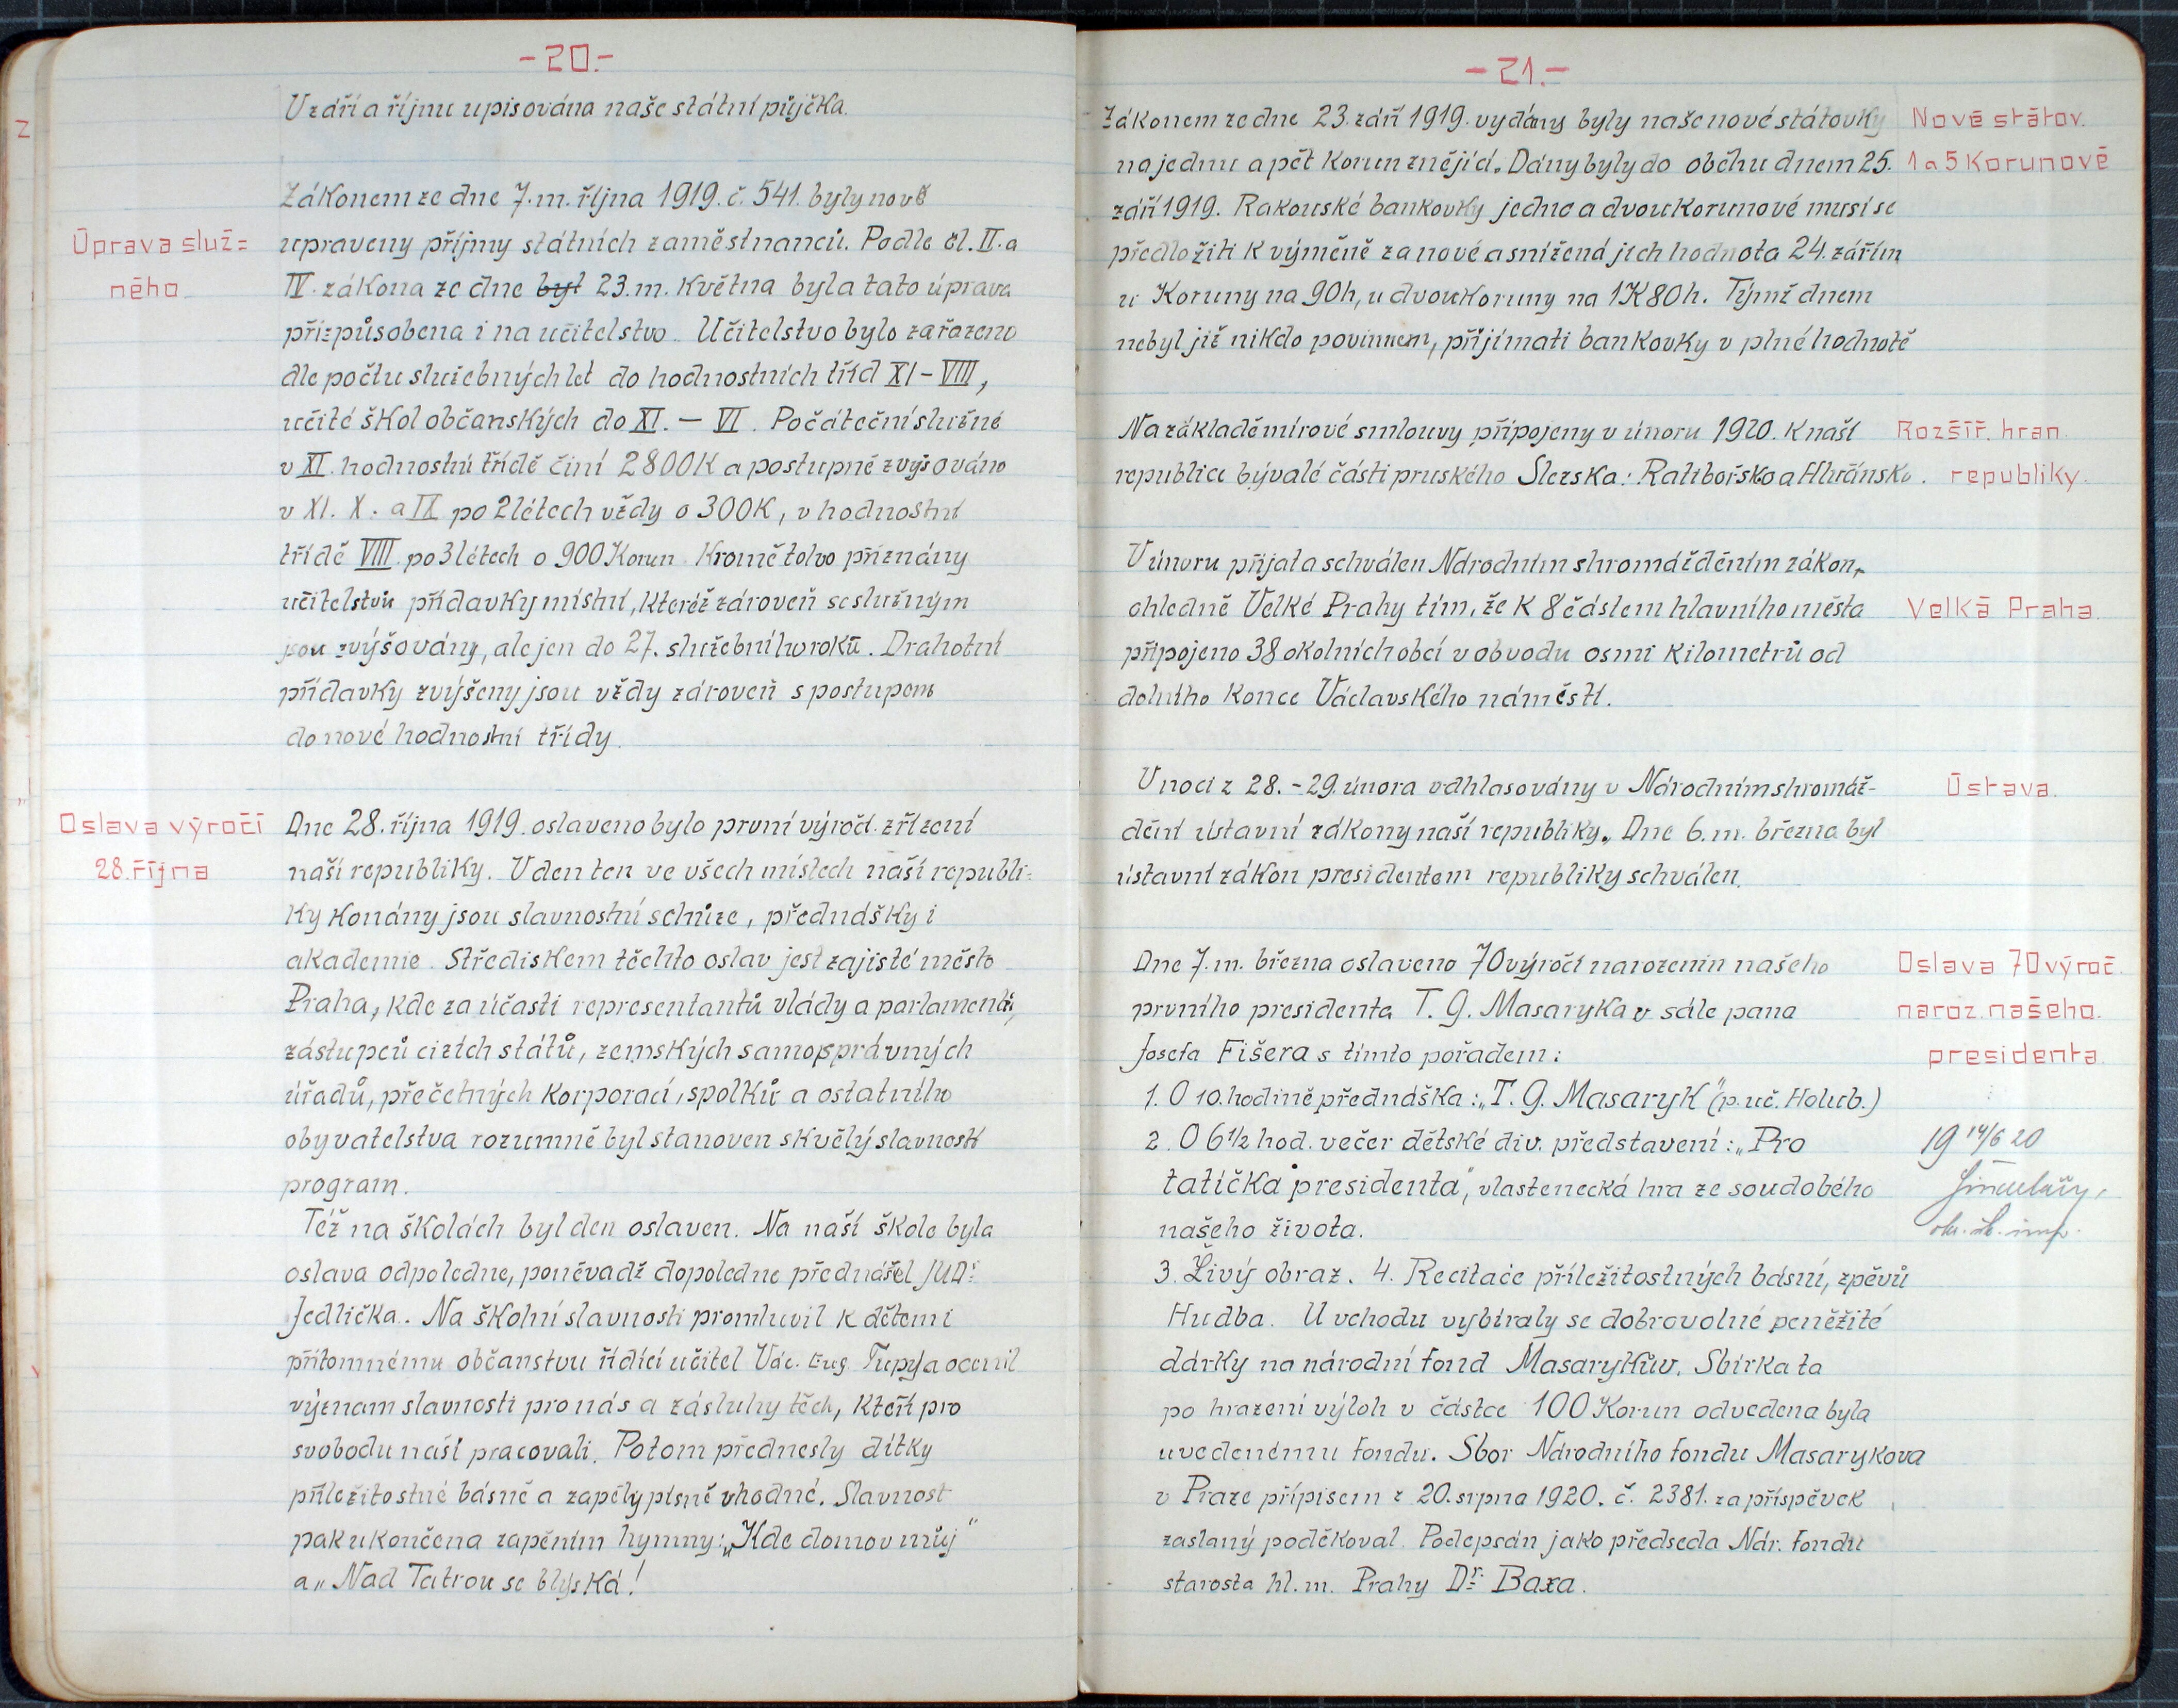 -20.-
V září a říjnu upisována naše státní půjčka.
Zákonem ze dne 7.m. října 1919. č. 541. byly nově
Úprava služ=
upraveny příjmy státních zaměstnanců. Podle čl. II. a
ného
IV. zákona ze dne byl 23.m. května byla tato úprava
přizpůsobena i na učitelstvo. Učitelstvo bylo zařazeno
dle počtu služebných let do hodnostních tříd XI – VIII,
učité škol občanských do XI. – VI. Počáteční služné
v XI. hodnostní třídě činí 2800K a postupně zvyšováno
v XI. X. a IX po 2 létech vždy o 300K, v hodnostní
třídě VIII. po 3 létech o 900 Korun. Kromě toho přiznány
učitelstvu přídavky místní, kteréž zároveň se služným
jsou zvyšovány, ale jen do 27. služebního roku. Drahotní
přídavky zvýšeny jsou vždy zároveň s postupem
do nové hodnostní třídy.
Oslava výročí
28. října
Dne 28. října 1919. oslaveno bylo první výroč. zřízení
naší republiky. V den ten ve všech místech naší republi-
ky konány jsou slavnostní schůze, přednášky i
akademie. Střediskem těchto oslav jest zajisté město
Praha, kde za účasti representantů vlády a parlamentu,
zástupců cizích států, zemských samosprávných
úřadů, přečetných korporací, spolků a ostatního
obyvatelstva rozumně byl stanoven skvělý slavnostní
program.
Též na školách byl den oslaven. Na naší škole byla
oslava odpoledne, poněvadž dopoledne přednášel JUDr.
Jedlička. Na školní slavnosti promluvil k dětem i
přítomnému občanstvu řídící učitel Vác. Eug. Tupý a ocenil
význam slavnosti pro nás a zásluhy těch, kteří pro
svobodu naší pracovali. Potom přednesly dítky
příležitostné básně a zapěly písně vhodné. Slavnost
pak ukončena zapěním hymny: „Kde domov můj"
a „Nad Tatrou se blýská!
-21.-
Zákonem ze dne 23. září 1919. vydány byly naše nové státovky
Nové státov.
na jednu a pět korun znějící. Dány byly do oběhu dnem 25.
1 a 5 korunové
září 1919. Rakouské bankovky jedno a dvoukorunové musí se
předložiti k výměně za nové a snížená jich hodnota 24. zářím
u Koruny na 90h, u dvoukoruny na 1K80h. Týmž dnem
nebyl již nikdo povinnem, přijímati bankovky v plné hodnotě
Na základě mírové smlouvy připojeny v únoru 1920. k naší
Rozšíř. hran.
republice bývalé části pruského Slezska: Ratibořsko a Hlučínsko.
republiky.
V únoru přijat a schválen Národním shromážděním zákon,
ohledně Velké Prahy tím, že k 8 částem hlavního města
Velká Praha.
připojeno 38 okolních obcí v obvodu osmi kilometrů od
dolního konce Václavského náměstí.
V noci z 28. - 29. února odhlasovány v Národním shromáž-
Ústava.
dění ústavní zákony naší republiky. Dne 6.m. března byl
ústavní zákon presidentem republiky schválen.
Dne 7.m. března oslaveno 70 výročí narozenin našeho
Oslava 70 výroč.
prvního presidenta T. G. Masaryka v sále pana
naroz. našeho.
Josefa Fišera s tímto pořadem:
presidenta.
1. O 10. hodině přednáška: „T. G. Masaryk" (p. uč. Holub.)
2. O 6½ hod. večer dětské div. představení: „Pro
19 14/6 20
tatíčka presidenta", vlastenecká hra ze soudobého
našeho života.
3. Živý obraz. 4. Recitace příležitostných básní, zpěvů
Hudba. U vchodu vybíraly se dobrovolné peněžité
dárky na národní fond Masarykův. Sbírka ta
po hrazení výloh v částce 100 Korun odvedena byla
uvedenému fondu. Sbor Národního fondu Masarykova
v Praze přípisem z 20. srpna 1920. č. 2381. za příspěvek
zaslaný poděkoval. Podepsán jako předseda Nár. fondu
starosta hl. m. Prahy Dr. Baxa.